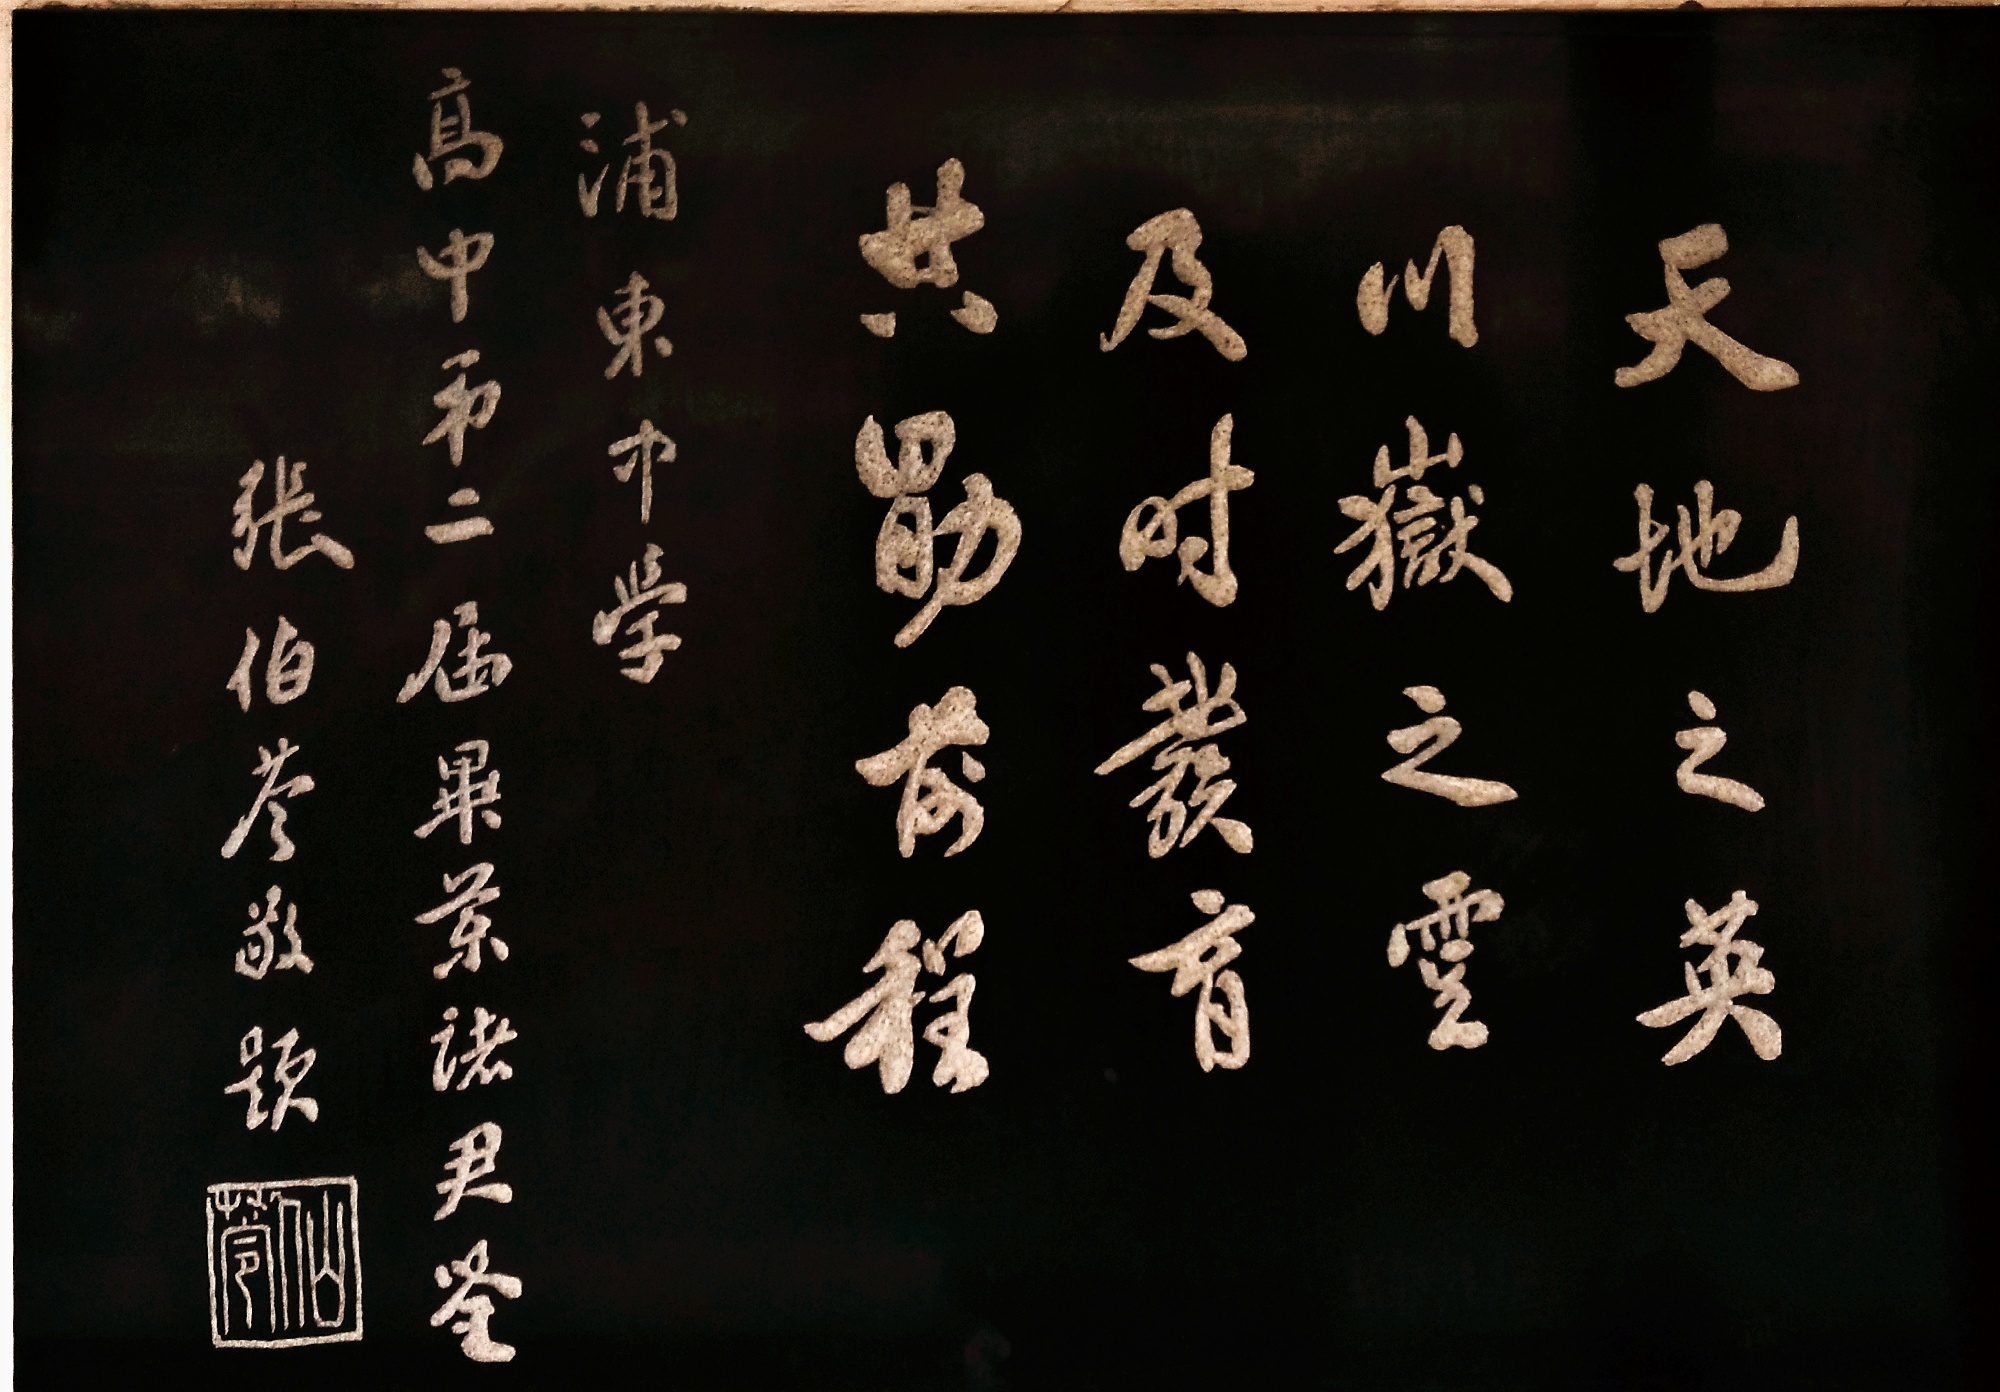 天地之英
川嶽之靈
及时發育
共勖前程
浦東中学
高中第二屆畢業諸君鉴
張伯苓敬題
伯苓